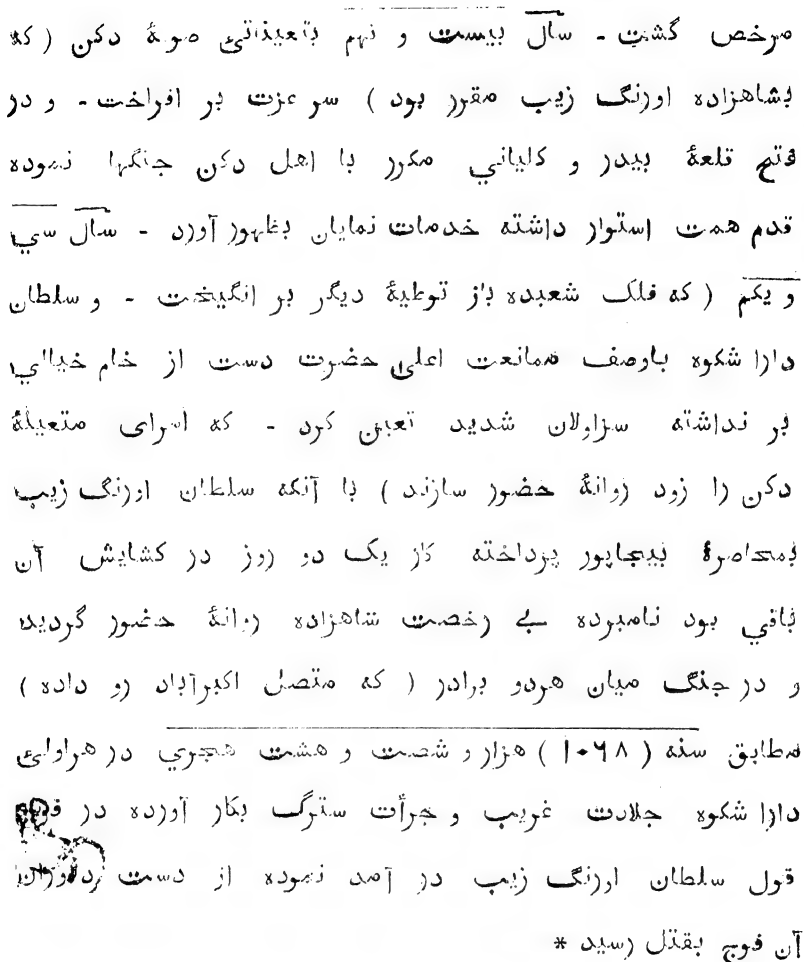 مرخص گشت - سال بیست و نهم بتعیذاتئ صوبۀ دکن ( که
بشاهزاده اورنگ زیب مقرر بود ) سر عزت بر افراخت - و در
فتح قلعۀ بیدر و کلیاني مکرر با اهل دکن جنگها نموده
قدم همت استوار داشته خدمات نمایان بظهور آورد - سال سي
و یکم ( که فلک شعبده باز توطیۀ دیگر بر انگیخت - و سلطان
دارا شکوه باوصف ممانعت اعلی حضرت دست از خام خیالي
بر نداشته سزاولان شدید تعین کرد - که امرای متعینۀ
دکن را زود روانۀ حضور سازند ) با آنکه سلطان اورنگ زیب
بمحاصرۀ بیجاپور پرداخته کار یک دو روز در کشایش آن
باقي بود نامبرده بے رخصت شاهزاده روانۀ حضور گردید
و در جنگ میان هردو برادر ( که متصل اکبرآباد رو داده )
مطابق سنه ( ۱۰۶۸ ) هزار و شصت و هشت هجري در هراولئ
دارا شکوه جلادت غریب و جرأت سترگ بکار آورده در فوج
قول سلطان اورنگ زیب در آمد نموده از دست دلاوران
آن فوج بقتل رسید *